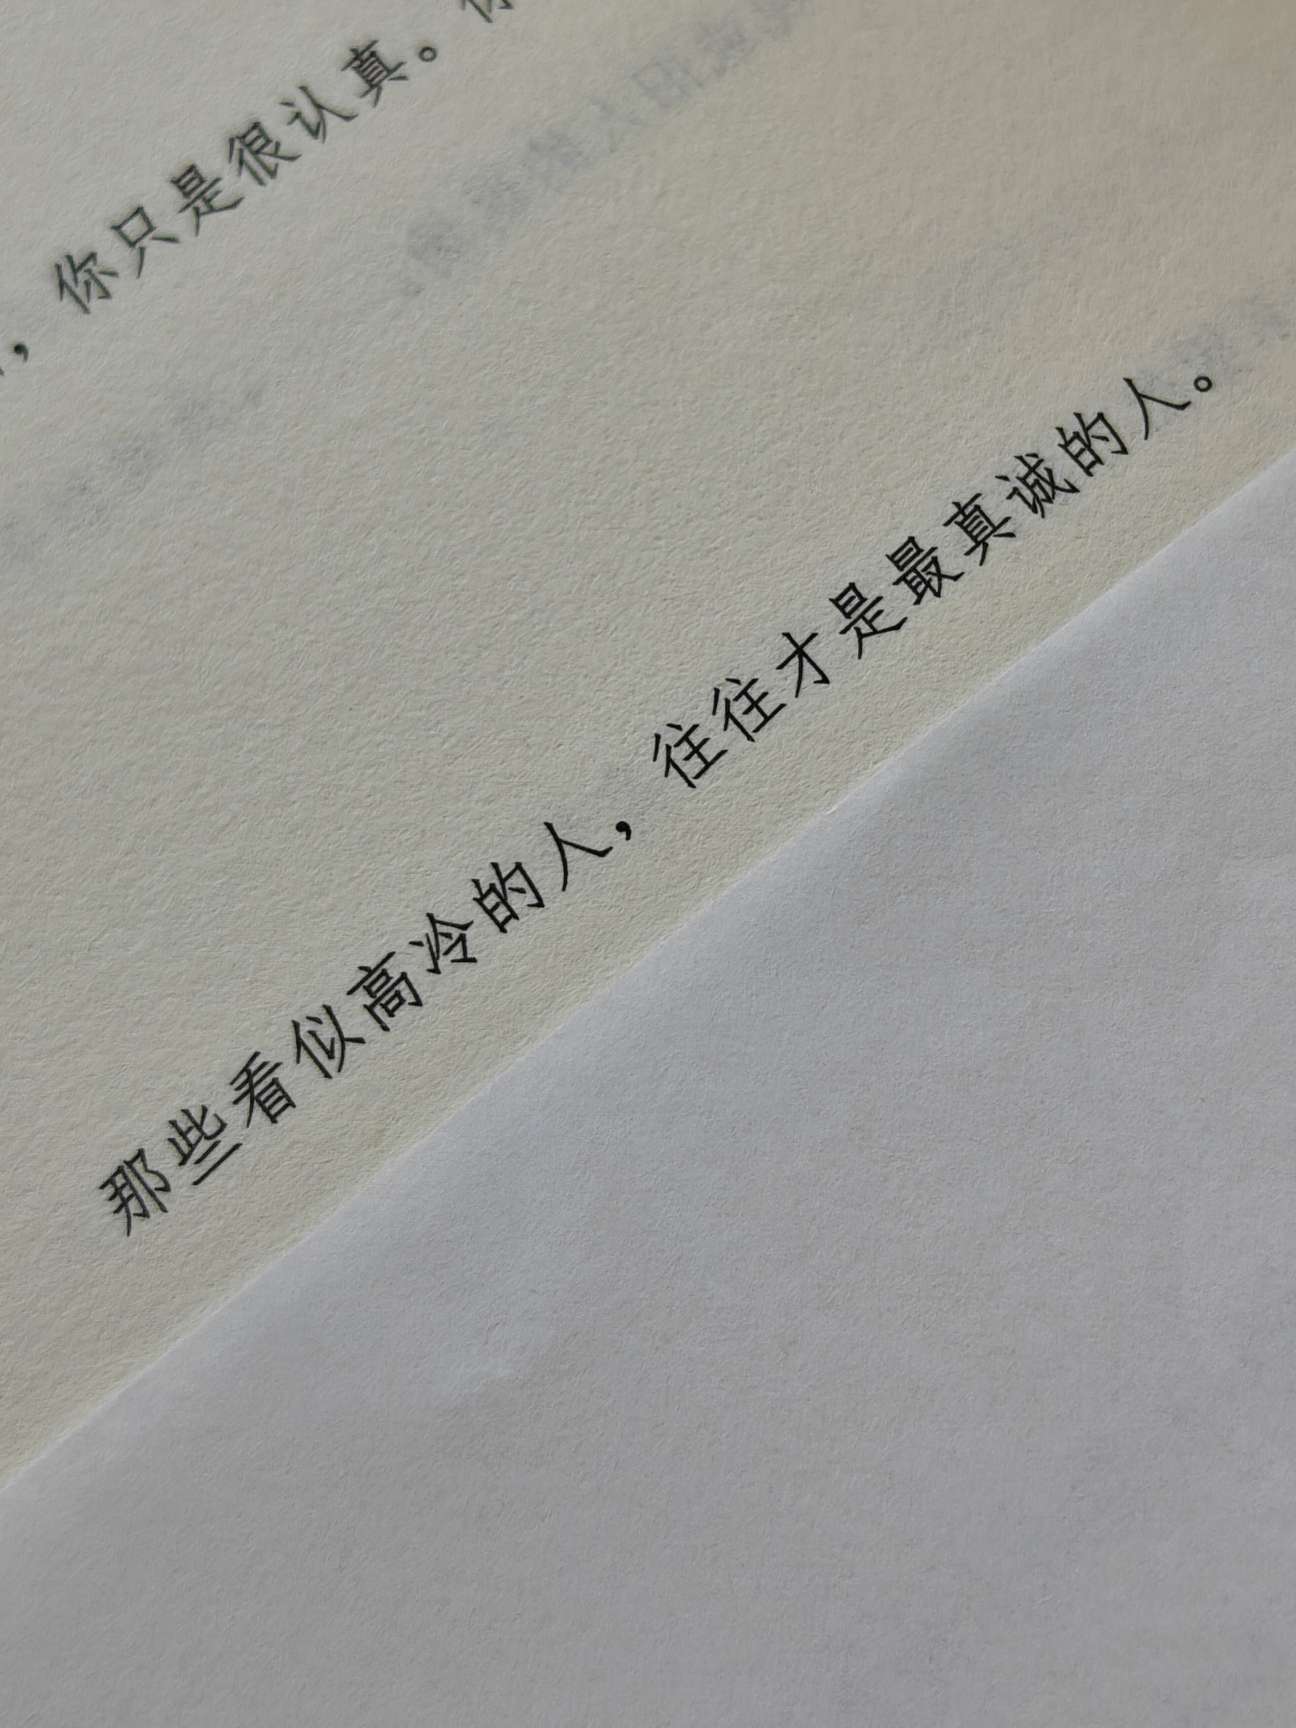 ，你只是很认真。
那些看似高冷的人，往往才是最真诚的人。